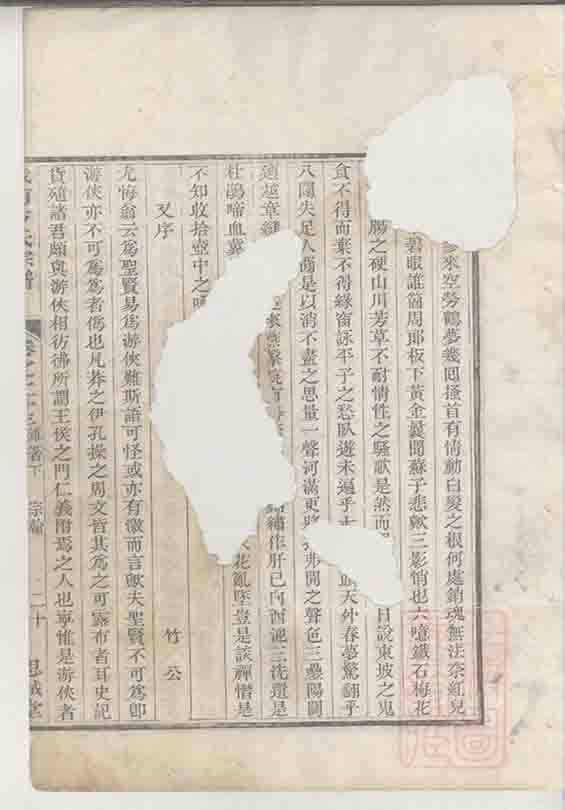 參來空勞鶴夢幾回搔首有情動白髮之根何處銷魂無法奈紅兒
碧眼誰箇周郎板下黃金曩聞蘇子悲歟三影悄也六噫鐵石梅花
腸之硬山川芳草不耐情性之騷歌是然而 日說東坡之鬼
貪不得而棄不得綠窗詠平子之愁臥遊未逼乎 天外春夢驚翻乎
八闋失足人 是以消不盡之思量一聲河滿更 弗開之聲色三疊陽關
繡作肝已向西 三洗還是
杜鵑啼血 花亂墜豈是談禪惜是
不知收拾壺中之
又序 竹公
尤悔翁云為聖賢易為游俠難斯語可怪或亦有激而言歟夫聖賢不可為即
游俠亦不可為為者偽也凡莽之伊孔操之周文皆其為之可露布者耳史記
貨殖諸君頗與游俠相彷彿所謂王侯之門仁義附焉之人也寧惟是游俠者
氏宗譜 卷之二十三 著下 二十 思誠堂